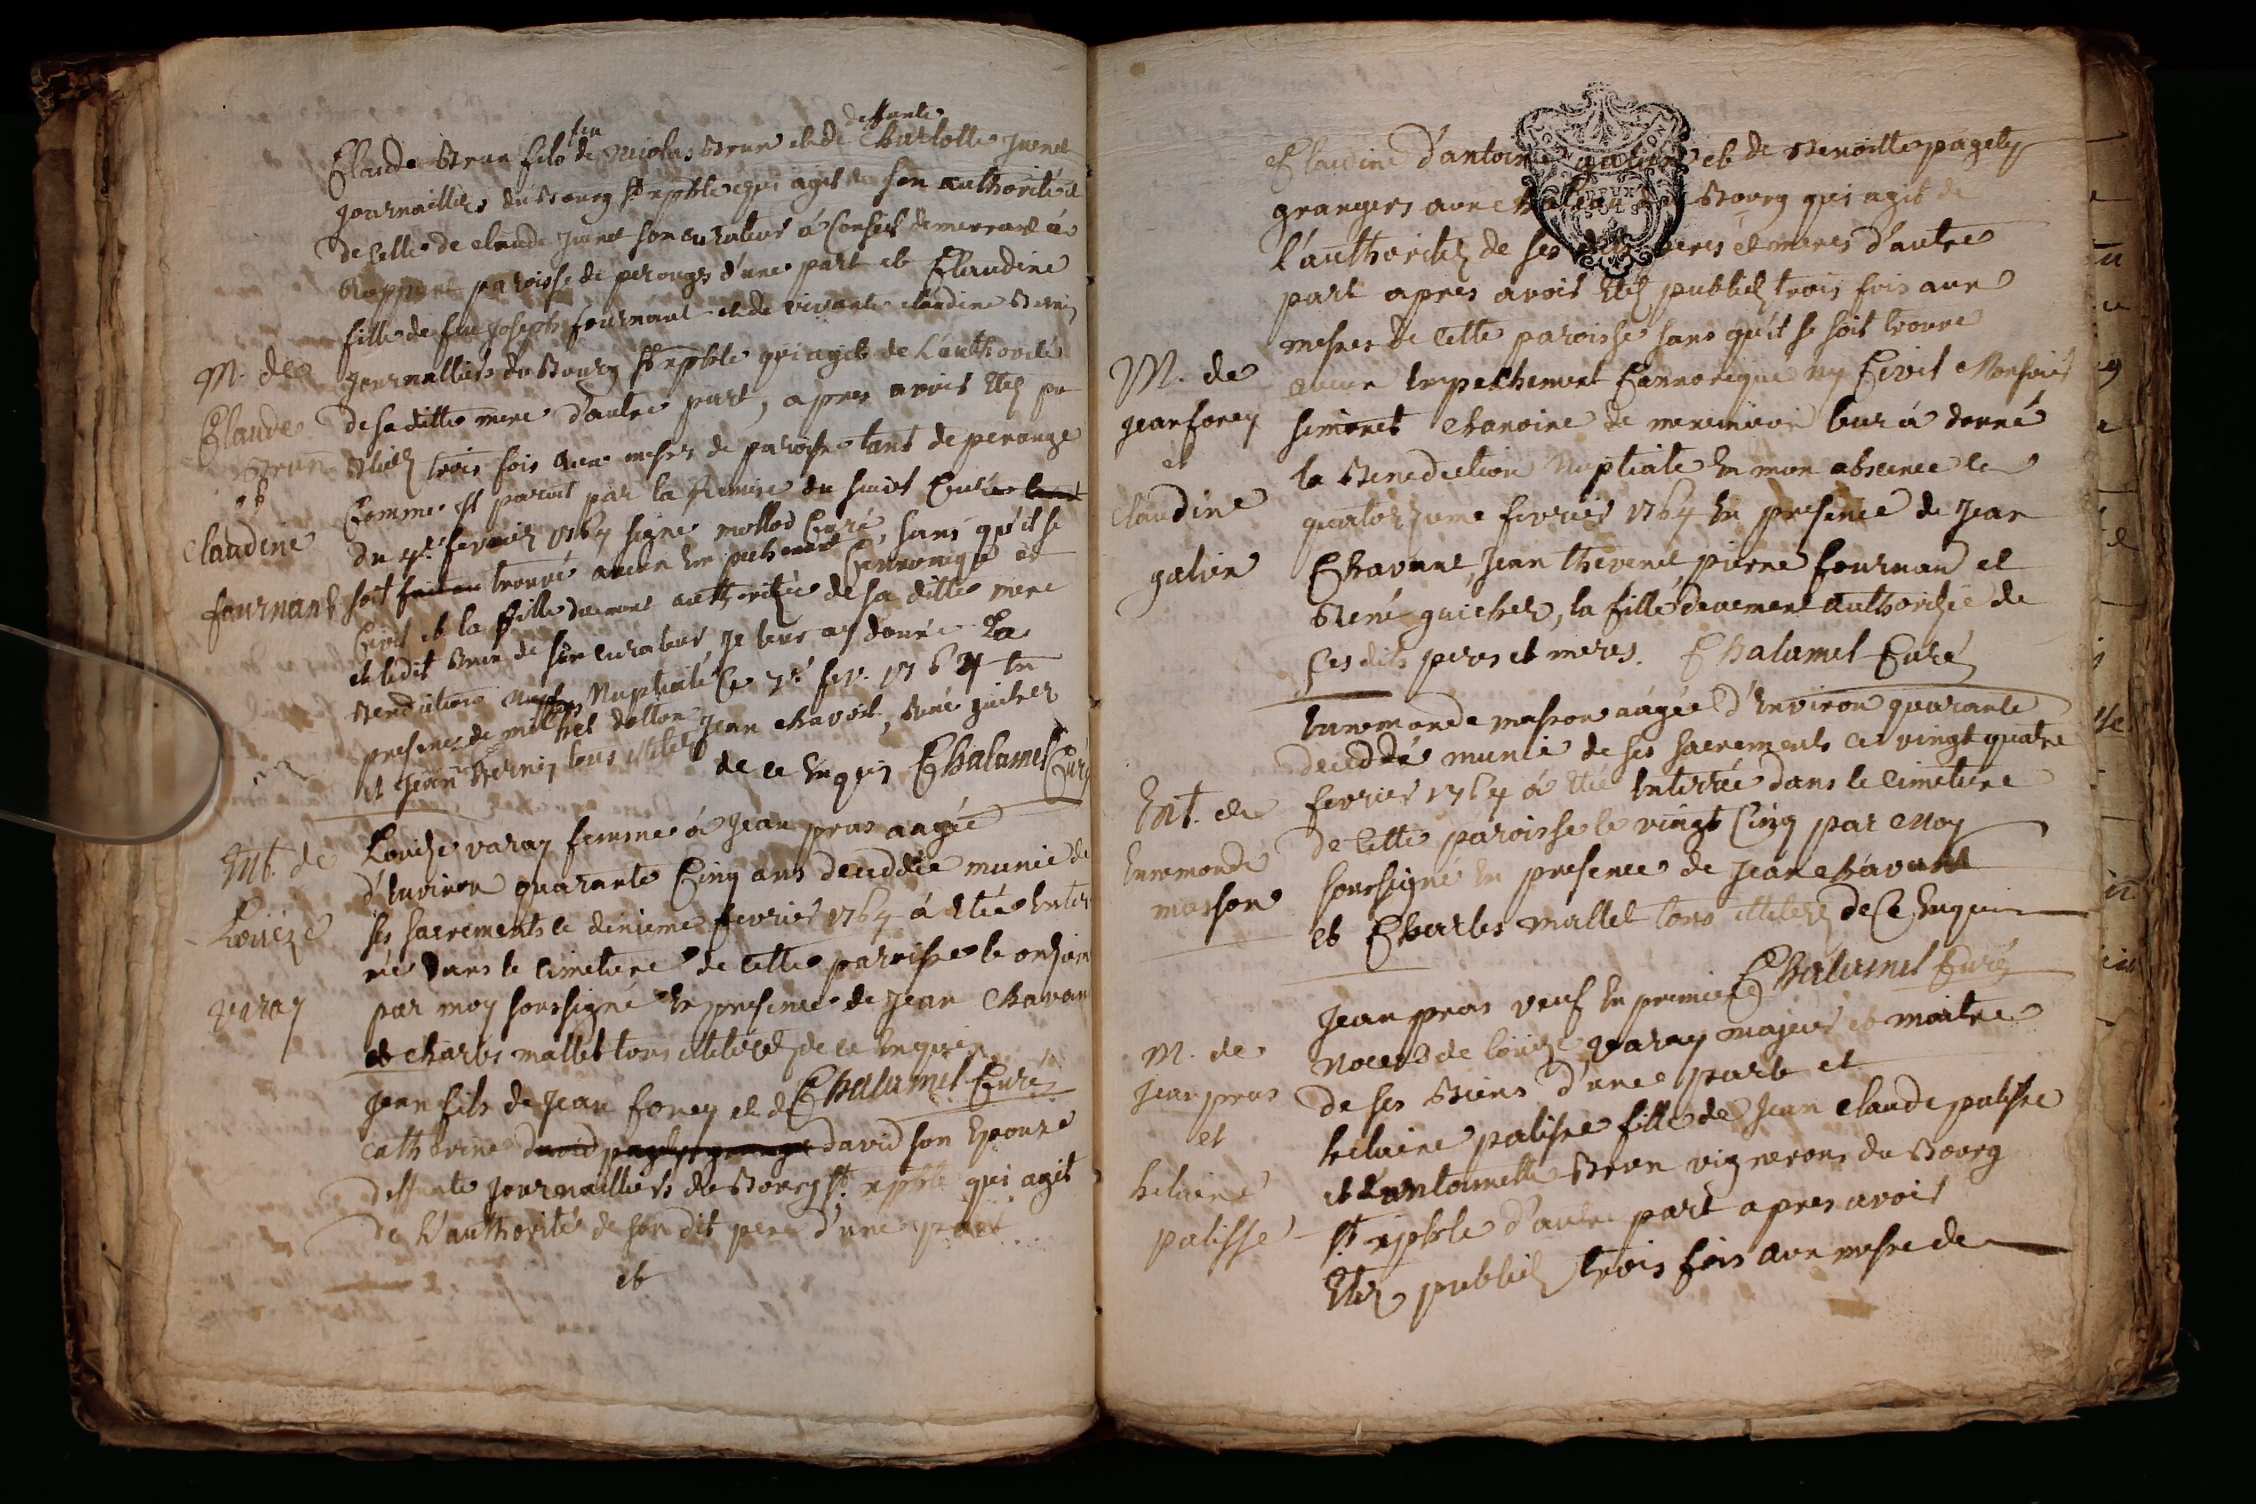 Claude Brun fils de feu Nicolas Brun et de deffunte Charlotte Juenet
journailliers du Bourg St xpble qui agit de son authorité et
de celle de claude Juenet son curateur à conseil demeurant à
paroisse de perouges d'une part et Claudine
fille de feu Joseph fournant et de vivante claudine Bernin
journalliers du Bourg St xpble qui agit de L'authorité
de sa ditte mere d'autre part, apres avoir Etéz pu
bliéz trois fois aux messes de paroisse tant de perouge
Comme Il paroit par la Remise du sieur Curé
du 4e fevrier 1764 signé mollod Curé, sans qu'il se
soit trouvé aucun Empechement Cannonique et
Civil et la fille duement authorizée de sa ditte mere
et ledit Brun de son curateur, Je leur ay donné La
Benediction Nuptiale Ce 7e fev. 1764 En
presence de michel dollon Jean chavoit, Bené guichez
et Jean Bernin tous illiterez
de ce Enquis Chalamel Curé
M. de
Claude
Brun
et
claudine
fournant
Louize varay femme à Jean pras augée
d'Environ quarante Cinq ans deceddée munie de
ses sacrements le dixieme fevrier 1764 à Etée Enter
rée dans le cimetiere de cette paroisse le onzieme
par moy soussigné En presence de Jean Chavan
et charles mallet tous illiteréz de ce Enquis
Chalamel Curé
Ent. de
Loüeze
varay
Jean fils de Jean forey et de
catherine david son Epouze
deffunte journailliers du Bourg St. xpble qui agit
de L'authorité de son dit pere d'une part
et
Claudine d'antoine galien et de Benoitte pagety
grangers aux du Bourg qui agit de
l'authoritéz de ses dits peres et meres d'autre
part apres avoir Etéz publiéz trois fois aux
messes de cette paroisse sans qu'il se soit trouvé
aucun Empechement Cannonique ny Civil Monsieur
simonet chanoine de meximieux leur à donné
la Benediction Nuptiale En mon absence le
quatorzieme fevrier 1764 En presence de Jean
Chavant, Jean thevenet pierre fournan et
Bené guichez, la fille devement authorizée de
ses dits peres et meres. Chalamel Curé
M. de
jean forey
et
claudine
galien
Ennemonde masson augée d'Environ quarante
deceddée munie de ses sacrements ce vingt quatre
fevrier 1764 à Etée Enterrée dans le cimetiere
de cette paroisse le vingt Cinq par Moy
soussigné En presence de Jean chavant
et Charles mallet tous illiteréz de Ce Enquis
Chalamel Curé
Ent. de
Ennemonde
masson
Jean pras veuf En premier
Noces de louize varay majeur et maitre
de ses Biens d'une part et
helaine palisse fille de Jean claude palisse
et d'antoinette Brun vignerons du Bourg
St xpble d'autre part apres avoir
Etéz publiéz trois fois aux messe de
M. de
Jean pras
et
helaine
palisse
DEUX
SOLS